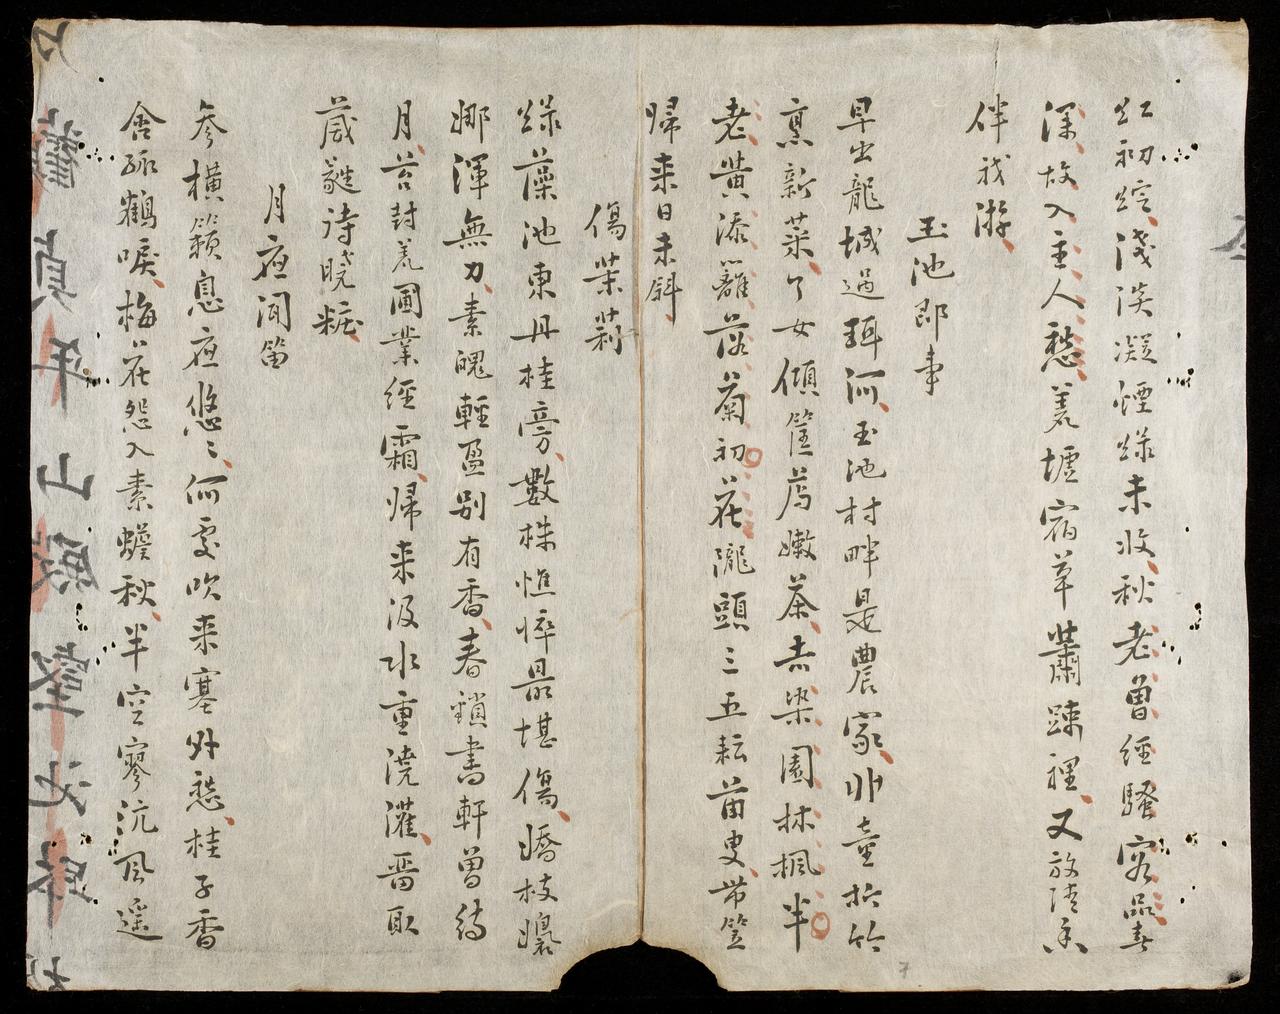 紅初綻淺淡凝煙綠未收秋老曾經騷客品春
深故入主人愁荒墟宿草蕭踈裡又放清香
伴我游
玉池即事
早出龍城過珥河玉池村畔是農家川童拾竹
烹新菜了女傾筐荐嫩茶赤染園林楓半
老黃添籬落菊初花隴頭三五耘苗叟帶笠
歸来日未斜
傷茉莉
綠藻池東丹桂旁數株憔悴最堪傷嬌枝嬝
娜渾無力素魄輕盈別有香春鎖書軒曾待
月苔封荒圃業經霜歸来汲水重澆灌畱取
葳蕤詩曉粧
月夜聞笛
參橫籟息夜悠〻何處吹来塞外愁桂子香
含孤鶴唳梅花怨入素蟾秋半空寥泬風遥